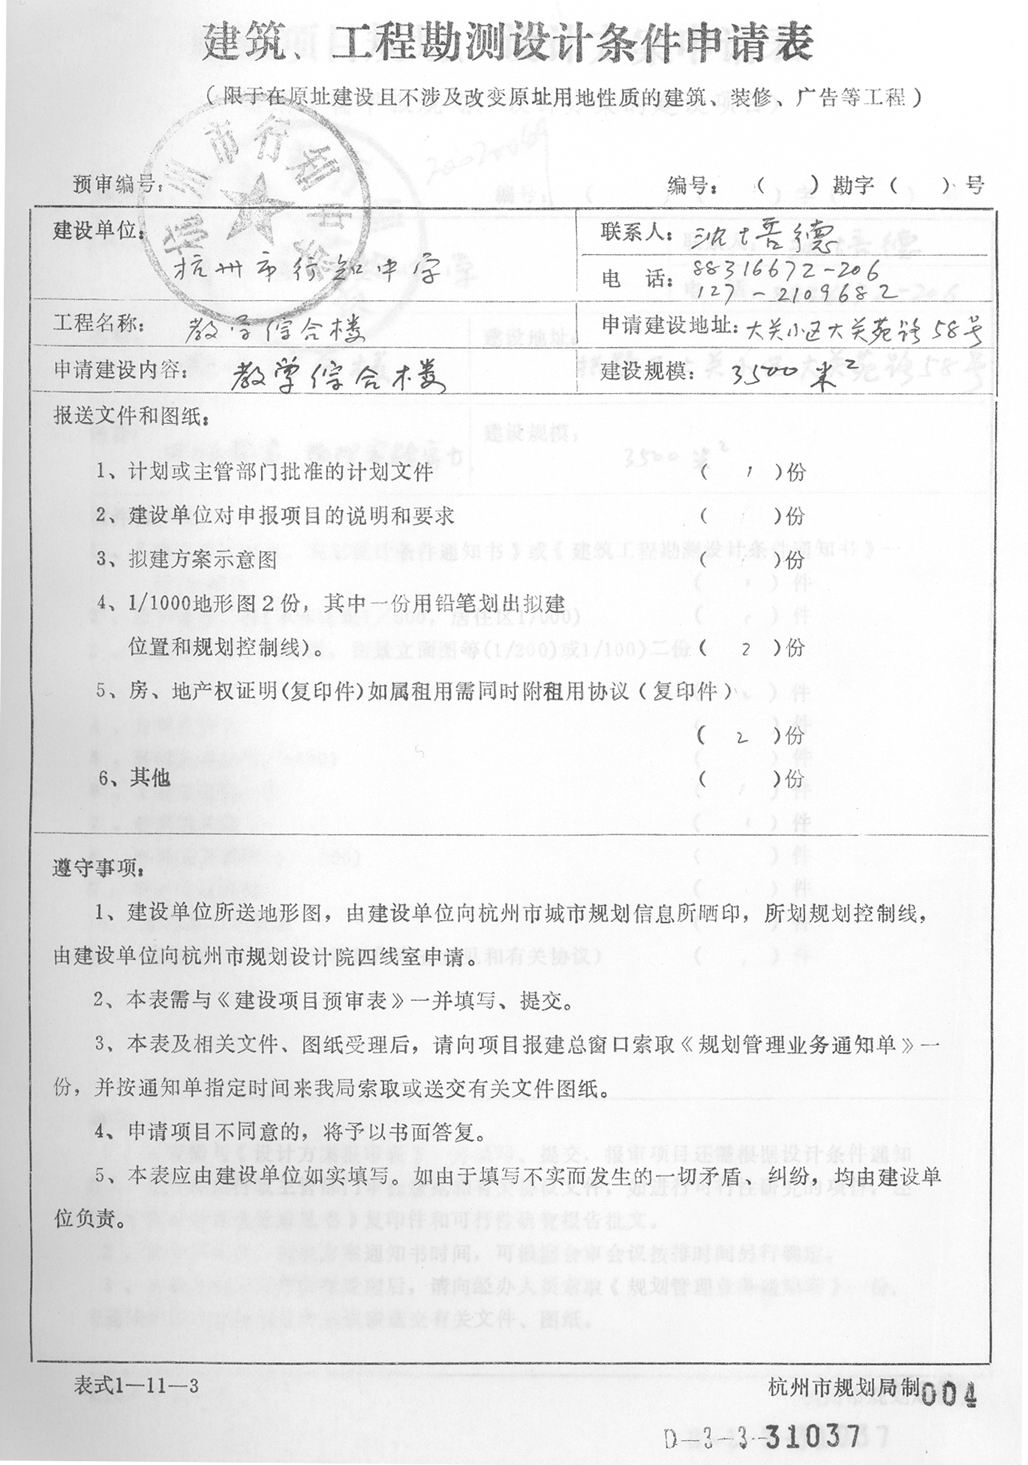 建筑、工程勘测设计条件申请表
(限于在原址建设且不涉及改变原址用地性质的建筑、装修、广告等工程)
预审编号：
编号：（　）勘字（　）号
建设单位：
杭州市行知中学
联系人：沈培德
电　话：88316672-206
127-2109682
工程名称：教学综合楼
申请建设地址：大关小区大关苑路58号
申请建设内容：教学综合楼
建设规模：3500米²
报送文件和图纸：
1、计划或主管部门批准的计划文件（1）份
2、建设单位对申报项目的说明和要求（　）份
3、拟建方案示意图（　）份
4、1/1000地形图2份，其中一份用铅笔划出拟建
位置和规划控制线)。（2）份
5、房、地产权证明(复印件)如属租用需同时附租用协议(复印件)
（2）份
6、其他（　）份
遵守事项：
1、建设单位所送地形图，由建设单位向杭州市城市规划信息所晒印，所划规划控制线，
由建设单位向杭州市规划设计院四线室申请。
2、本表需与《建设项目预审表》一并填写、提交。
3、本表及相关文件、图纸受理后，请向项目报建总窗口索取《规划管理业务通知单》一
份，并按通知单指定时间来我局索取或送交有关文件图纸。
4、申请项目不同意的，将予以书面答复。
5、本表应由建设单位如实填写。如由于填写不实而发生的一切矛盾、纠纷，均由建设单
位负责。
表式1—11—3
杭州市规划局制
004
D-3-3-31037